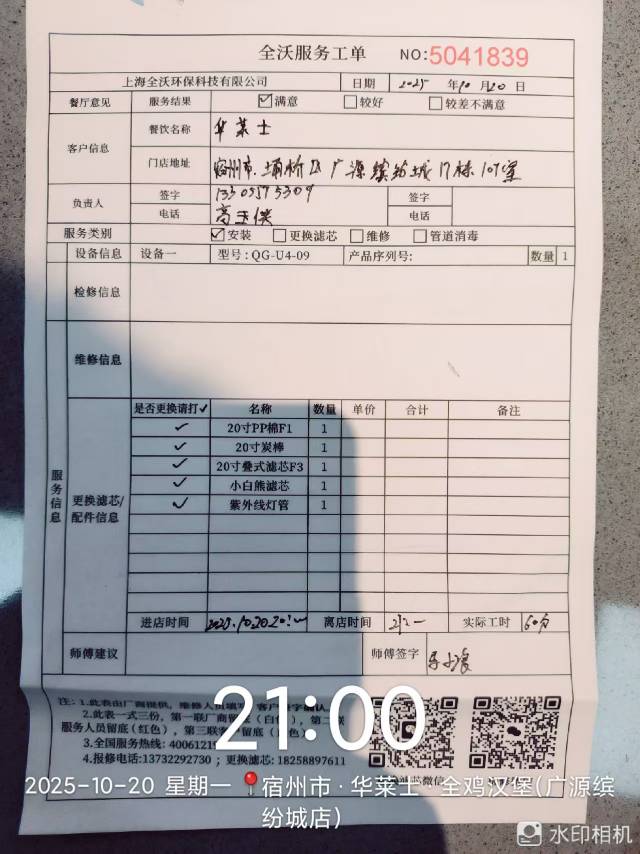 全沃服务工单 NO:5041839
上海全沃环保科技有限公司 日期 2025 年 10 月 20 日
餐厅意见 服务结果 ☑满意 □较好 □较差不满意
客户信息 餐饮名称 华莱士
门店地址 宿州市.埇桥区广源缤纷城17栋107室
负责人 签字 签字
电话 电话
服务类别 ☑安装 □更换滤芯 □维修 □管道消毒
设备信息 设备一 型号:QG-U4-09 产品序列号: 数量 1
检修信息
维修信息
服务信息
更换滤芯/配件信息
是否更换请打✓ 名称 数量 单价 合计 备注
✓ 20寸PP棉F1 1
✓ 20寸炭棒 1
✓ 20寸叠式滤芯F3 1
✓ 小白熊滤芯 1
✓ 紫外线灯管 1
进店时间 离店时间 实际工时 60分
师傅建议 师傅签字
注:1.此表由厂商提供,维修人员填
2.此表一式三份,第一联厂商留底(白色),第二联
服务人员留底(红色),第三联客户留底(蓝色)
3.全国服务热线:4006121
4.报修电话:13732292730;更换滤芯:18258897611
21:00
2025-10-20 星期一 📍宿州市·华莱士·全鸡汉堡(广源缤
纷城店)
水印相机